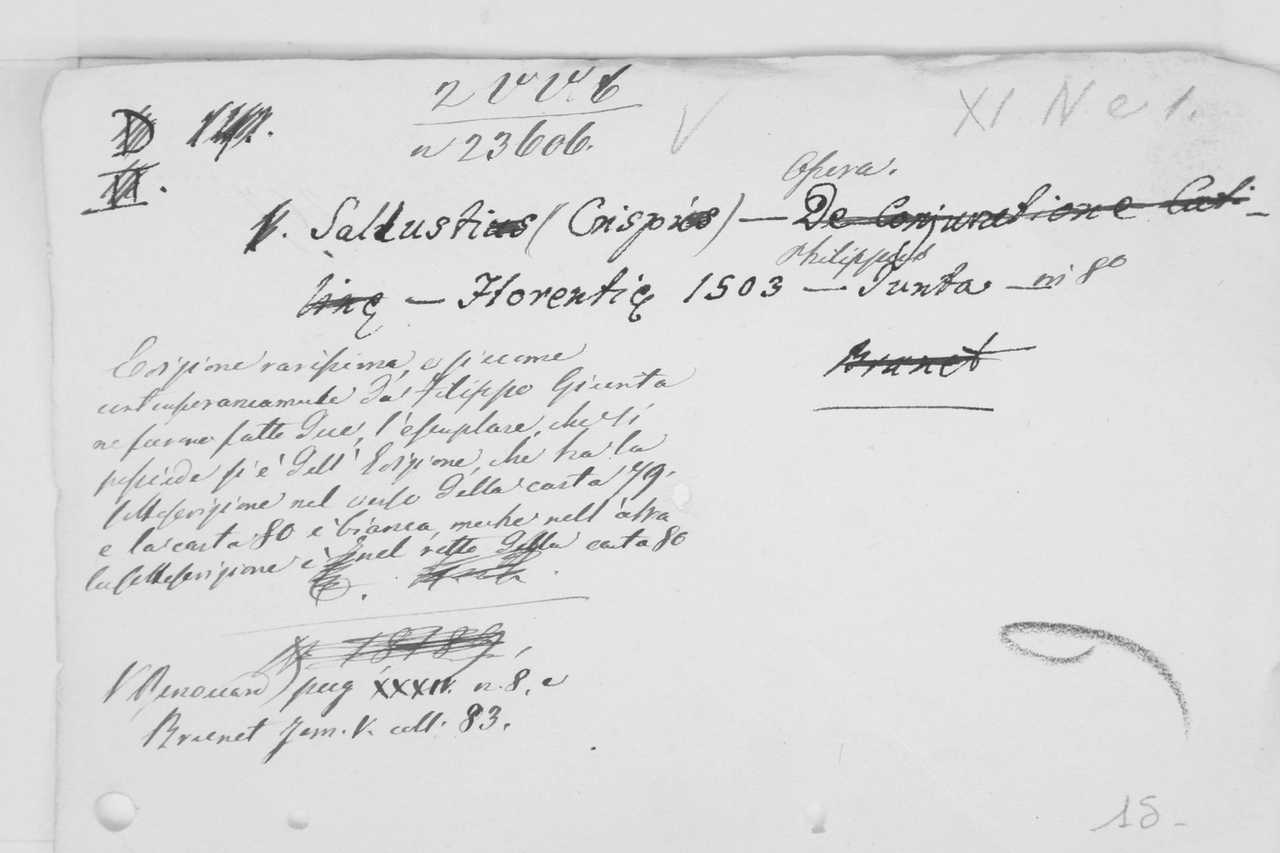 2 V V 6
XI N e 1.
D
VI.
n 23606.
V
Opera.
Sallustius (Crispius) — De Conjuratione Cati-
Philippus
linę — Florentię 1503 — Junta — in 8o
Brunet
Edizione rarissima, e siccome
contemporaneamente da Filippo Giunta
ne furono fatte due, l'esemplare, che si
possiede si è dell'Edizione, che ha la
sottoscrizione nel verso della carta 79.
e la carta 80 è bianca, mentre nell'altra
la sottoscrizione è nel retto della carta 80
N 18189
V Renouard pag XXXIV. n. 8, e
Brunet Tom. V. coll. 83.
18-